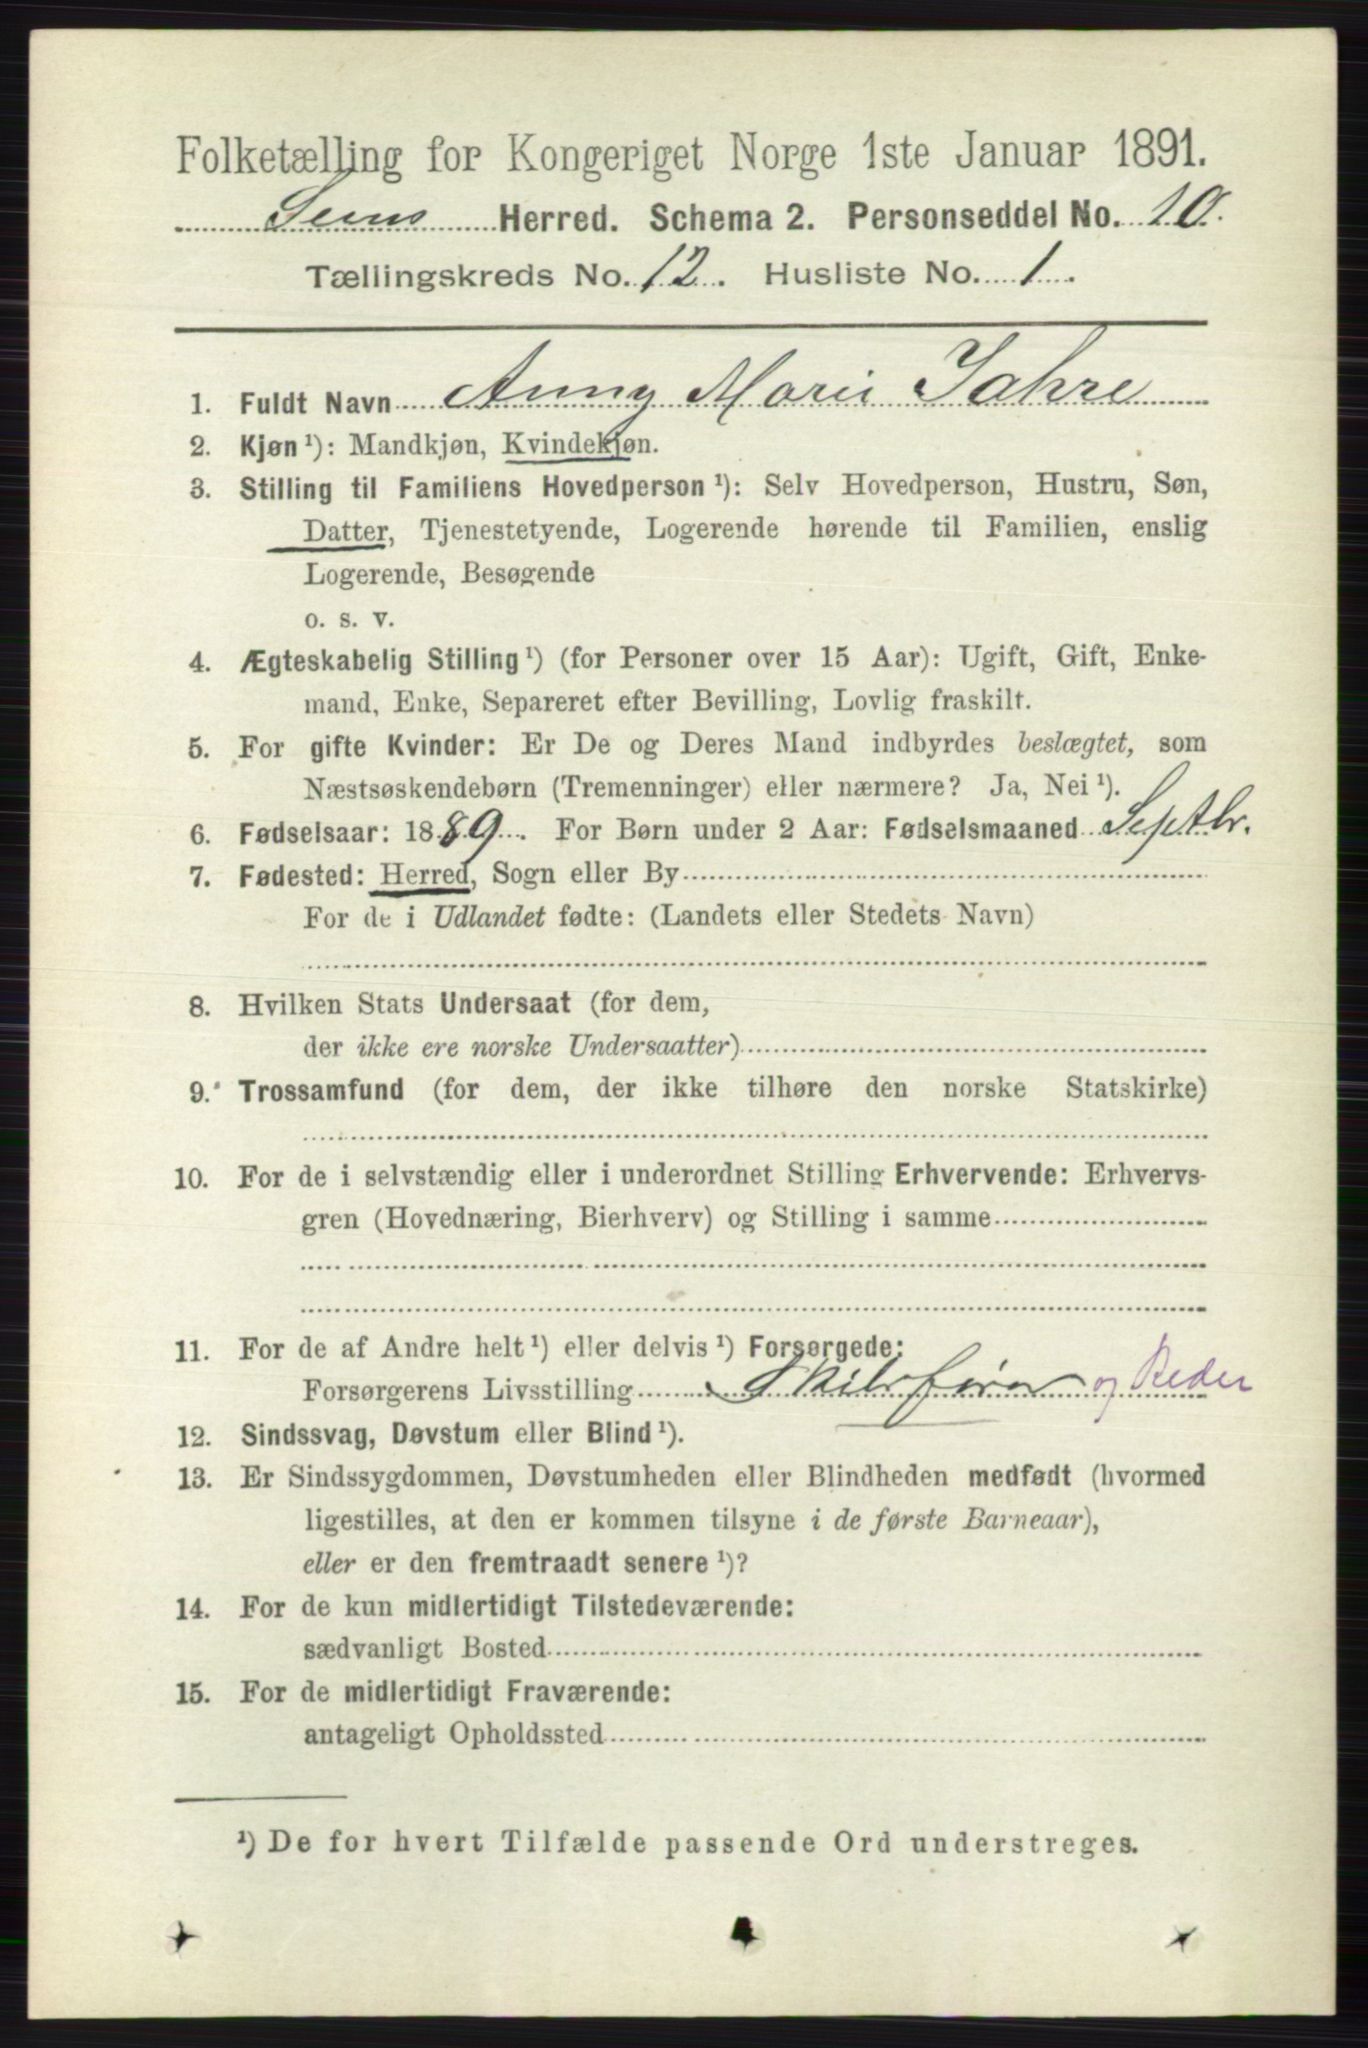 Folketælling for Kongeriget Norge 1ste Januar 1891.
Sems Herred. Schema 2. Personseddel No. 10.
Tællingskreds No. 12. Husliste No. 1.
1. Fuldt Navn Anny Marie Jahre
2. Kjøn ¹): Mandkjøn, Kvindekjøn.
3. Stilling til Familiens Hovedperson ¹): Selv Hovedperson, Hustru, Søn,
Datter, Tjenestetyende, Logerende hørende til Familien, enslig
Logerende, Besøgende
o. s. v.
4. Ægteskabelig Stilling ¹) (for Personer over 15 Aar): Ugift, Gift, Enke-
mand, Enke, Separeret efter Bevilling, Lovlig fraskilt.
5. For gifte Kvinder: Er De og Deres Mand indbyrdes beslægtet, som
Næstsøskendebørn (Tremenninger) eller nærmere? Ja, Nei ¹).
6. Fødselsaar: 1889. For Børn under 2 Aar: Fødselsmaaned Septbr.
7. Fødested: Herred, Sogn eller By
For de i Udlandet fødte: (Landets eller Stedets Navn)
8. Hvilken Stats Undersaat (for dem,
der ikke ere norske Undersaatter)
9. Trossamfund (for dem, der ikke tilhøre den norske Statskirke)
10. For de i selvstændig eller i underordnet Stilling Erhvervende: Erhvervs-
gren (Hovednæring, Bierhverv) og Stilling i samme
11. For de af Andre helt ¹) eller delvis ¹) Forsørgede:
Forsørgerens Livsstilling Skibsfører og Reder
12. Sindssvag, Døvstum eller Blind ¹).
13. Er Sindssygdommen, Døvstumheden eller Blindheden medfødt (hvormed
ligestilles, at den er kommen tilsyne i de første Barneaar),
eller er den fremtraadt senere ¹)?
14. For de kun midlertidigt Tilstedeværende:
sædvanligt Bosted
15. For de midlertidigt Fraværende:
antageligt Opholdssted
¹) De for hvert Tilfælde passende Ord understreges.